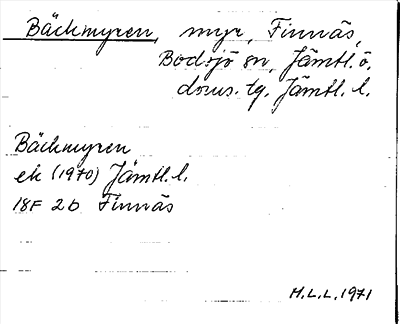 Bäckmyren, myr, Finnäs,
Bodsjö sn, Jämtl. ö.
doms. tg. Jämtl. l.
Bäckmyren
ek (1970) Jämtl. l.
18F 2b Finnäs
H.L.L. 1971